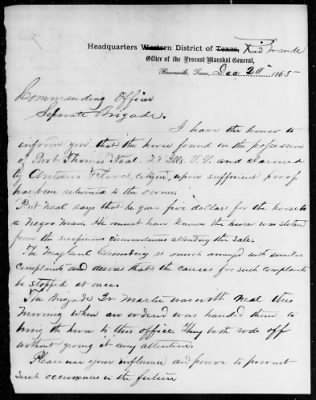 Headquarters Western District of Texas, Rio Grande
Office of the Provost Marshal General,
Brownsville, Texas, Dec 20" 1865
Commanding Officer
Separate Brigade.
I have the honor to
inform you that the horse found in the possession
of Thomas Neal. and claimed
by Antonio citizen, upon sufficient proof
has been returned to the owner.
Neal says that he gave five dollars for the horse to
a Negro man. He must have known the horse was stolen
from the suspicious circumstances attending the sale.
The Maj Genl Comndg is much annoyed with similar
Complaints and desires that the causes for such complaints
be stopped at once.
The Brigade Qr Master was with Neal this
morning when an order was handed them to
bring the horse to this office. They both rode off
without giving it any attention.
Please use your influence and power to prevent
such occurrences in the future